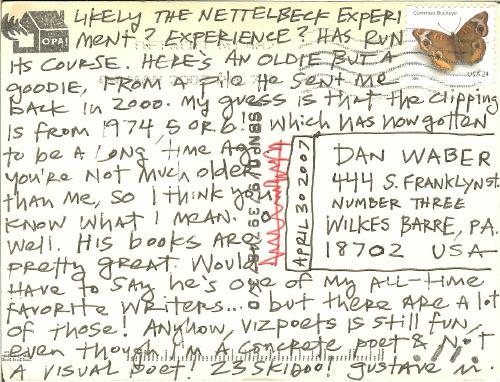 OPA!
LIKELY THE NETTELBECK EXPERI
MENT? EXPERIENCE? HAS RUN
ITS COURSE. HERE'S AN OLDIE BUT A
GOODIE, FROM A PILE HE SENT ME
BACK IN 2000. MY GUESS IS THAT THE CLIPPING
IS FROM 1974, 5 OR 6! WHICH HAS NOW GOTTEN
TO BE A LONG TIME AGO
YOU'RE NOT MUCH OLDER
THAN ME, SO I THINK YOU
KNOW WHAT I MEAN.
WELL. HIS BOOKS ARE
PRETTY GREAT. WOULD
HAVE TO SAY HE'S ONE OF MY ALL-TIME
FAVORITE WRITERS... BUT THERE ARE A LOT
OF THOSE! ANYHOW, VIZPOETS IS STILL FUN,
EVEN THOUGH I'M A CONCRETE POET & NOT
A VISUAL POET! 23 SKIDOO! GUSTAVE
Common Buckeye
USA 24
APRIL 30 2007
DAN WABER
444 S. FRANKLYN ST.
NUMBER THREE
WILKES BARRE, PA.
18702 USA